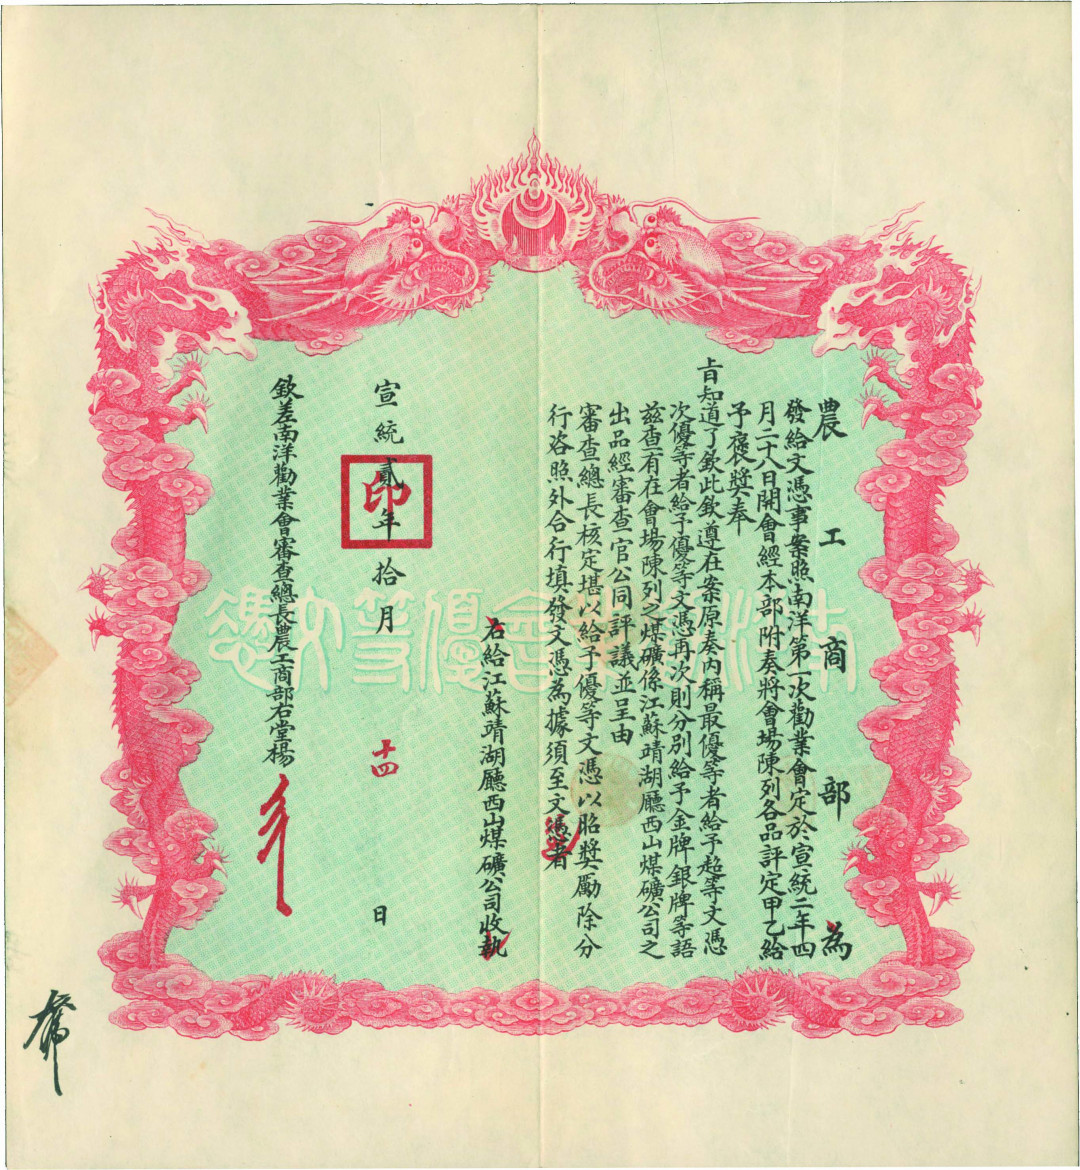 農工商部為
發給文憑事案照南洋第一次勸業會定於宣統二年四
月二十八日開會經本部附奏將會場陳列各品評定甲乙給
予褒獎奉
旨知道了欽此欽遵在案原奏內稱最優等者給予超等文憑
次優等者給予優等文憑再次則分別給予金牌銀牌等語
茲查有在會場陳列之煤礦係江蘇靖湖廳西山煤礦公司之
出品經審查官公同評議並呈由
審查總長核定堪以給予優等文憑以昭獎勵除分
行咨照外合行填發文憑為據須至文憑者
右給江蘇靖湖廳西山煤礦公司收執
宣統貳年拾月十四日
印
欽差南洋勸業會審查總長農工商部右堂楊
南洋勸業會優等文憑